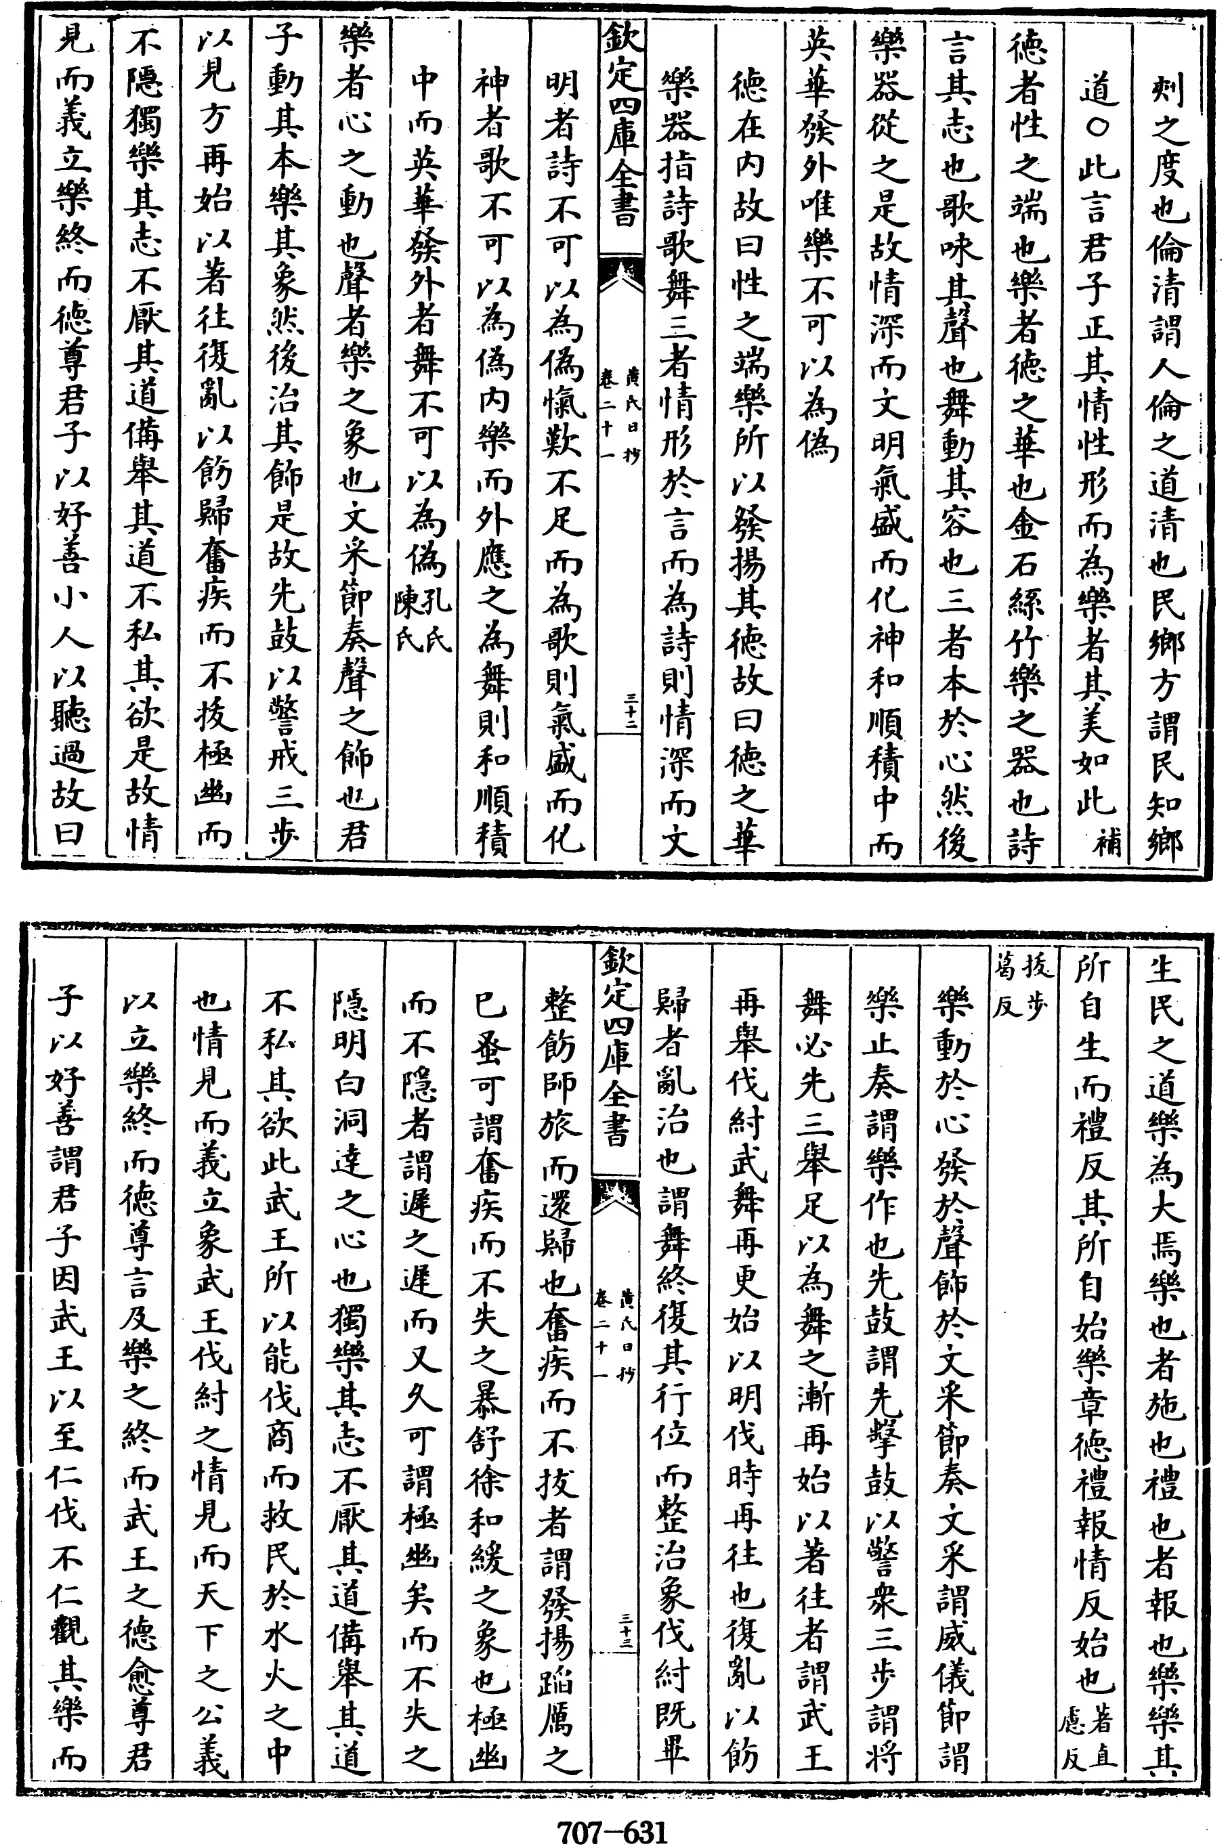 刺之度也倫清謂人倫之道清也民鄉方謂民知鄉
道○此言君子正其情性形而為樂者其美如此補
德者性之端也樂者德之華也金石絲竹樂之器也詩
言其志也歌咏其聲也舞動其容也三者本於心然後
樂器從之是故情深而文明氣盛而化神和順積中而
英華發外唯樂不可以為偽
德在內故曰性之端樂所以發揚其德故曰德之華
樂器指詩歌舞三者情形於言而為詩則情深而文
欽定四庫全書
黃氏日抄
卷二十一
三十二
明者詩不可以為偽愾歎不足而為歌則氣盛而化
神者歌不可以為偽內樂而外應之為舞則和順積
中而英華發外者舞不可以為偽孔氏
陳氏
樂者心之動也聲者樂之象也文采節奏聲之飾也君
子動其本樂其象然後治其飾是故先鼓以警戒三步
以見方再始以著往復亂以飭歸奮疾而不拔極幽而
不隱獨樂其志不厭其道備舉其道不私其欲是故情
見而義立樂終而德尊君子以好善小人以聽過故曰
生民之道樂為大焉樂也者施也禮也者報也樂樂其
所自生而禮反其所自始樂章德禮報情反始也著直
慮反
拔步
葛反
樂動於心發於聲飾於文采節奏文采謂威儀節謂
樂止奏謂樂作也先鼓謂先擊鼓以警衆三步謂將
舞必先三舉足以為舞之漸再始以著往者謂武王
再舉伐紂武舞再更始以明伐時再往也復亂以飭
歸者亂治也謂舞終復其行位而整治象伐紂既畢
欽定四庫全書
黃氏日抄
卷二十一
三十三
整飭師旅而還歸也奮疾而不拔者謂發揚蹈厲之
已蚤可謂奮疾而不失之暴舒徐和緩之象也極幽
而不隱者謂遲之遲而又久可謂極幽矣而不失之
隱明白洞達之心也獨樂其志不厭其道備舉其道
不私其欲此武王所以能伐商而救民於水火之中
也情見而義立象武王伐紂之情見而天下之公義
以立樂終而德尊言及樂之終而武王之德愈尊君
子以好善謂君子因武王以至仁伐不仁觀其樂而
707-631